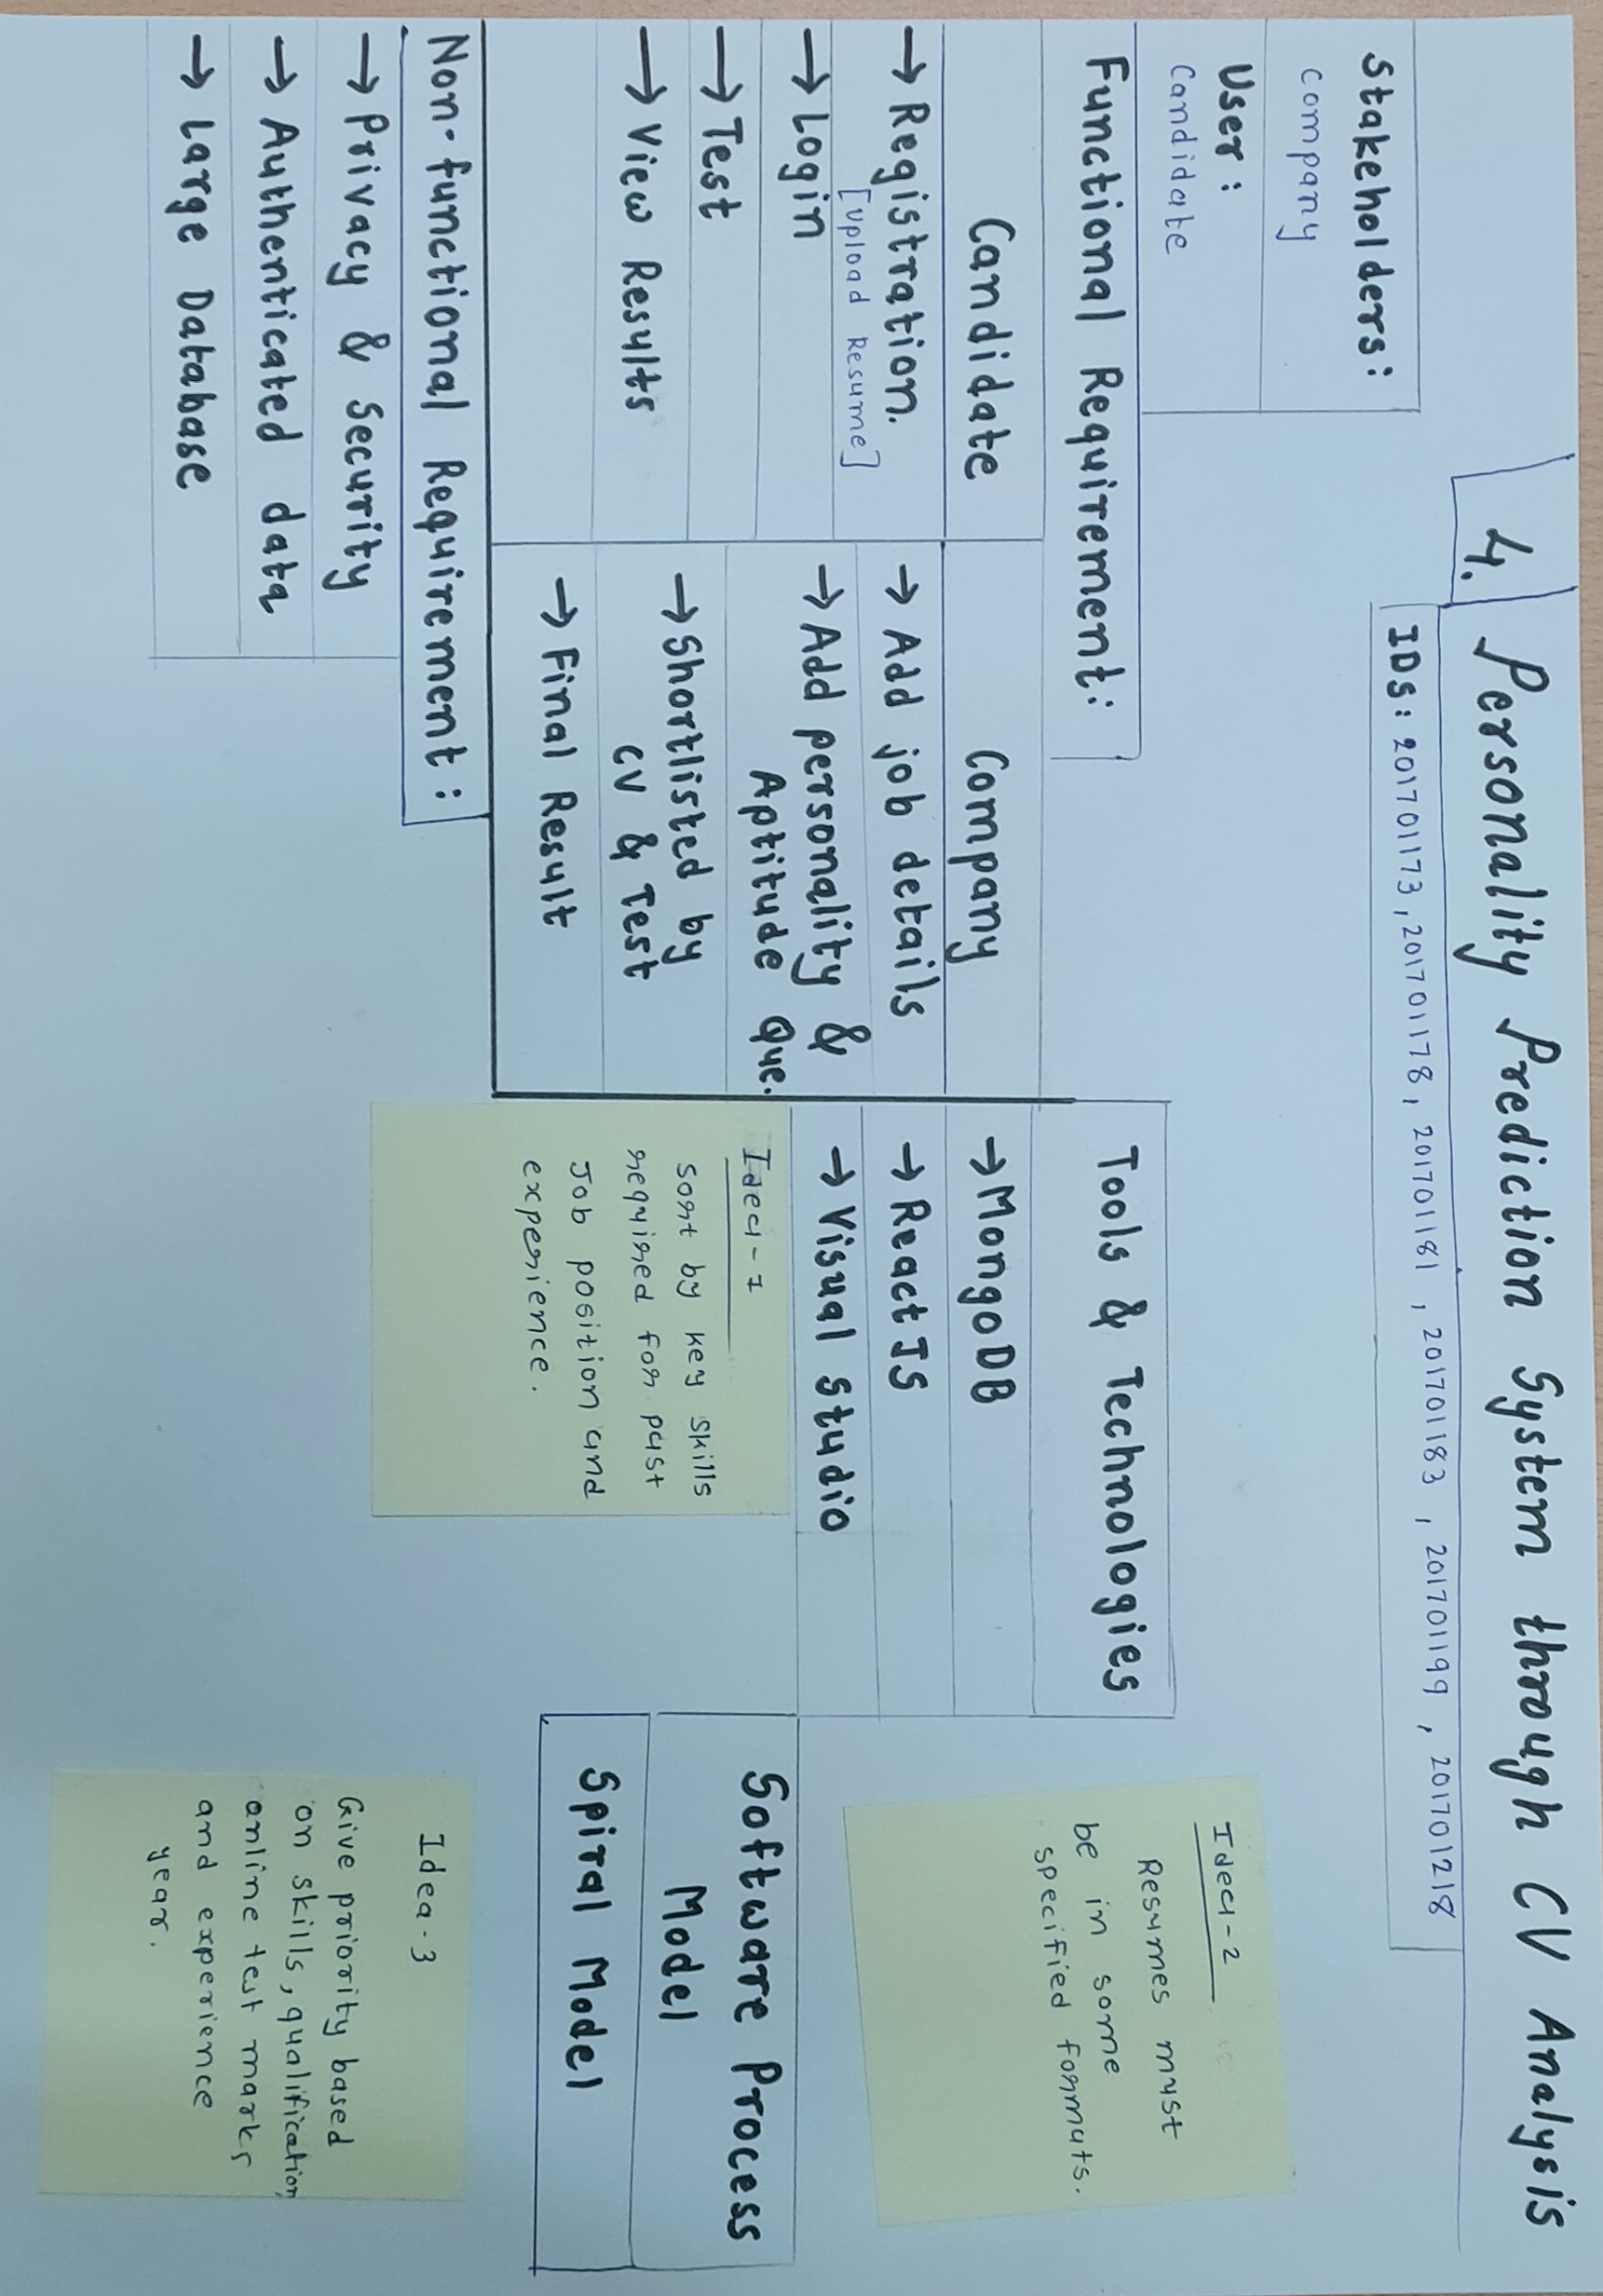 4. Personality Prediction System through CV Analysis
IDs: 201701173, 201701178, 201701181, 201701183, 201701199, 201701218
Stakeholders:
Company
User:
Candidate
Functional Requirement:
Candidate
→ Registration.
[Upload Resume]
→ Login
→ Test
→ View Results
Company
→ Add job details
→ Add personality &
Aptitude Que.
→ Shortlisted by
CV & Test
→ Final Result
Non-functional Requirement:
→ Privacy & Security
→ Authenticated data
→ Large Database
Tools & Technologies
→ MongoDB
→ ReactJS
→ Visual Studio
Idea-1
Sort by key skills
required for past
Job position and
experience.
Idea-2
Resumes must
be in some
specified formats.
Software Process
Model
Spiral Model
Idea-3
Give priority based
on skills, qualification,
online test marks
and experience
year.